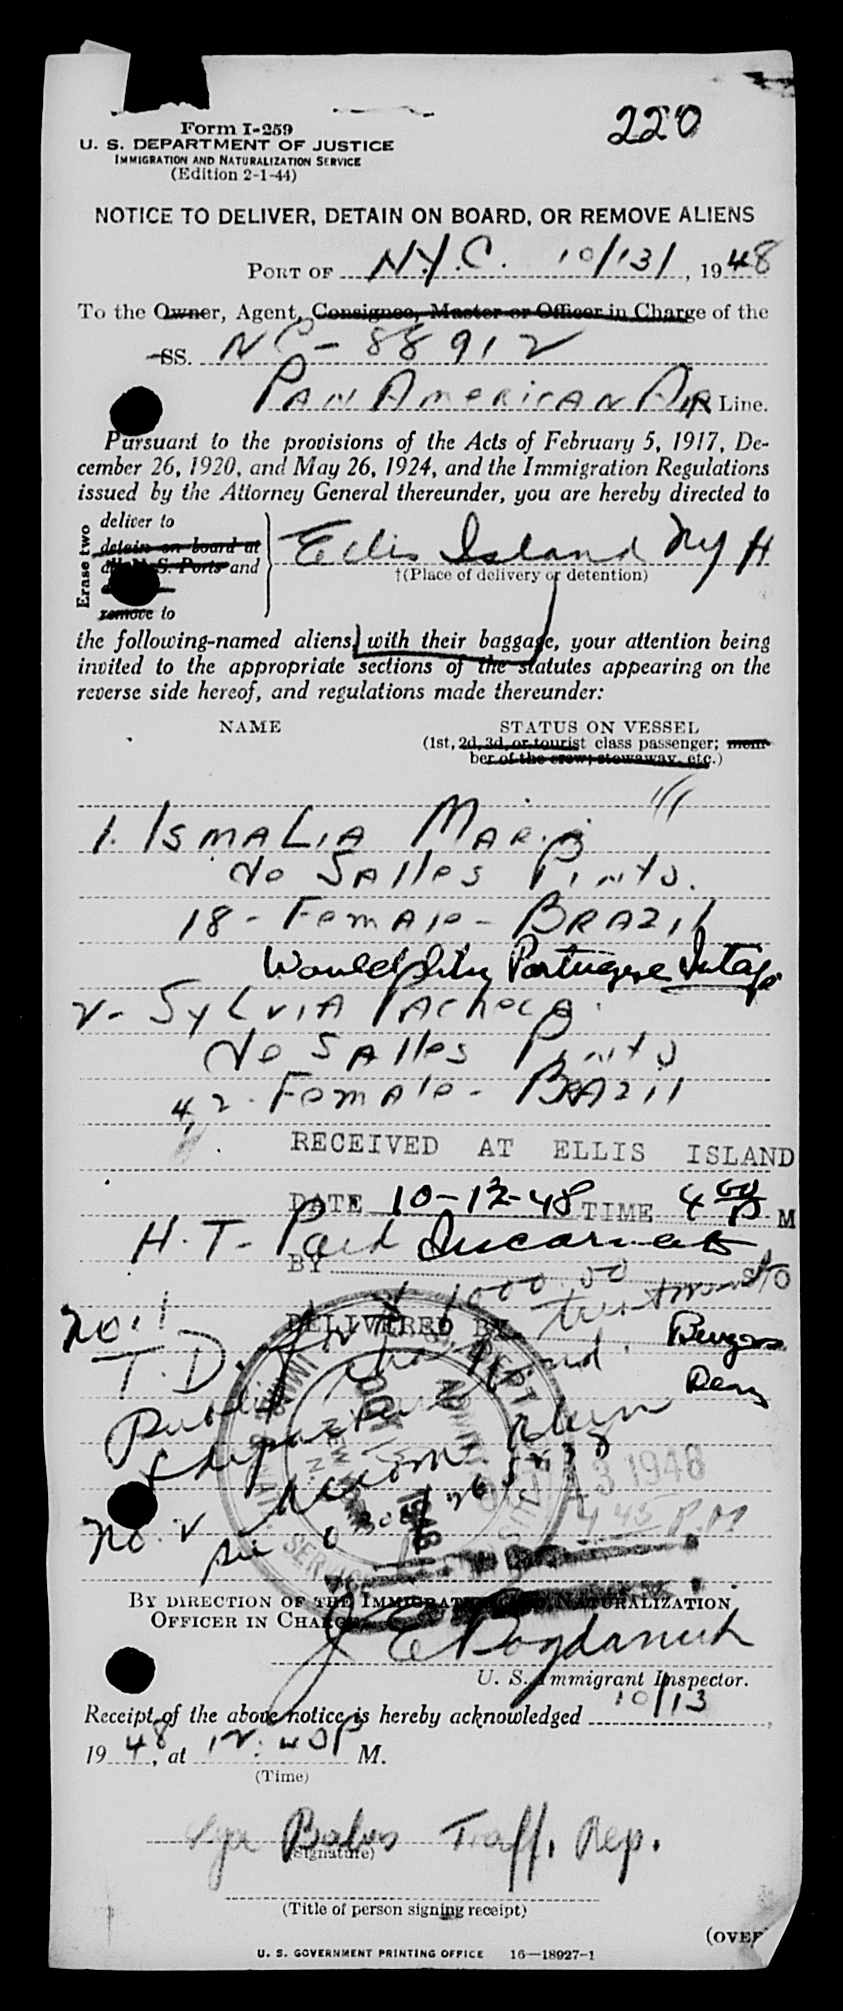 220
Form I-259
U. S. DEPARTMENT OF JUSTICE
IMMIGRATION AND NATURALIZATION SERVICE
(Edition 2-1-44)
NOTICE TO DELIVER, DETAIN ON BOARD, OR REMOVE ALIENS
PORT OF N.Y.C. 10/13/, 1948
To the Owner, Agent, Consignee, Master or Officer in Charge of the
SS. NC-88912
PAN AMERICAN AIR Line.
Pursuant to the provisions of the Acts of February 5, 1917, De-
cember 26, 1920, and May 26, 1924, and the Immigration Regulations
issued by the Attorney General thereunder, you are hereby directed to
Erase two
deliver to
detain on board at
all U. S. Ports and
remove to
Ellis Island NYH
†(Place of delivery or detention)
the following-named aliens, with their baggage, your attention being
invited to the appropriate sections of the statutes appearing on the
reverse side hereof, and regulations made thereunder:
NAME STATUS ON VESSEL
(1st, 2d, 3d, or tourist class passenger; mem-
ber of the crew; stowaway, etc.)
1. ISMALIA MARIA
de SALLES PINTO.
18 - FEMALE - BRAZIL
Would Portugese
2- SYLVIA PACHECA
de SALLES PINTO
42 - FEMALE - BRAZIL
RECEIVED AT ELLIS ISLAND
DATE 10-12-48 TIME 4 00 P M
H.T. - Paid
BY
1000.00
No. 1
DELIVERED BY
T.D. for treatment
Public charge bond.
& departure
accom. alien
OCT 13 1948
4 45 P.M
No. 2
see
BY DIRECTION OF THE IMMIGRATION AND NATURALIZATION
OFFICER IN CHARGE.
J E Bogdanich
U. S. Immigrant Inspector.
Receipt of the above notice is hereby acknowledged 10/13,
1948, at 12:40 P M.
(Time)
Traff. Rep.
(Signature)
(Title of person signing receipt)
(OVER
U. S. GOVERNMENT PRINTING OFFICE 16—18927-1